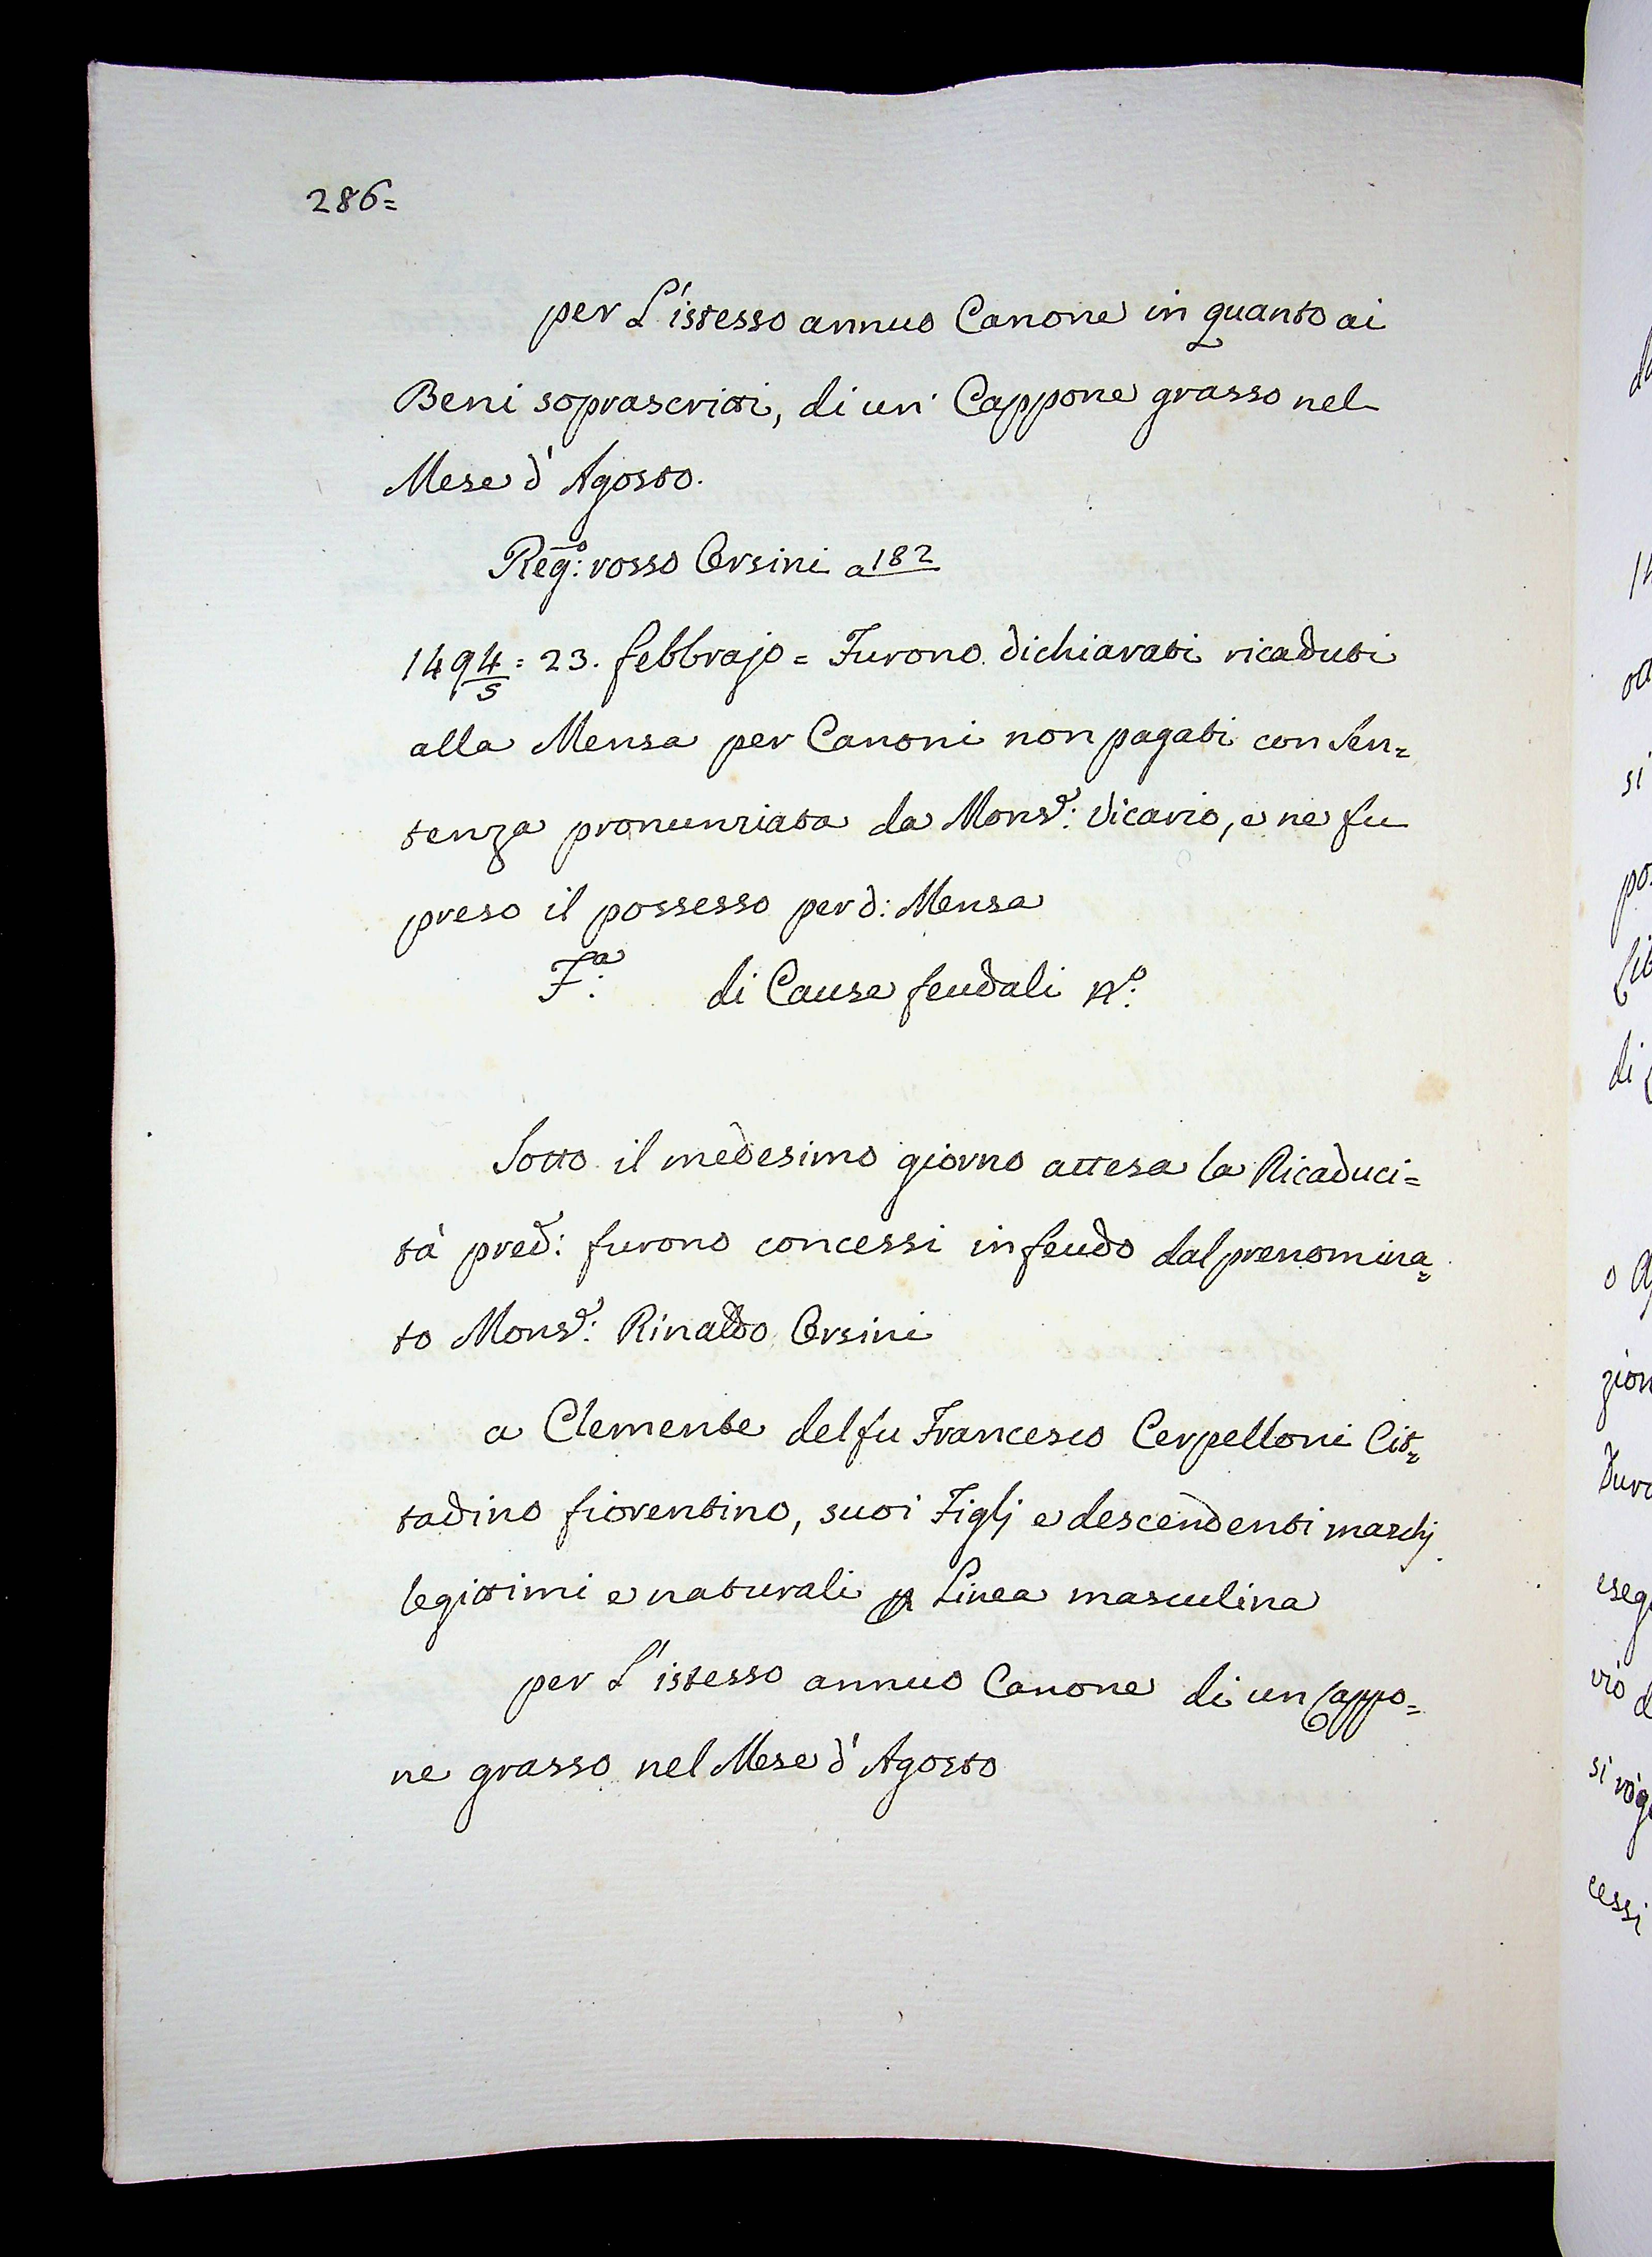 286=
per L'istesso annuo Canone in quanto ai
Beni soprascritti, di un' Cappone grasso nel
Mese d' Agosto.
Reg:o rosso Orsini a 182
1494/5 = 23. febbrajo = Furono dichiarati ricaduti
alla Mensa per Canoni non pagati con Sen=
tenza pronunziata da Monsr: Vicario, e ne fu
preso il possesso per d: Mensa
Fa: di Cause feudali No:
Sotto il medesimo giorno attesa la Ricaduci=
tà pred: furono concessi in feudo dal prenomina=
to Monsr: Rinaldo Orsini
a Clemente del fu Francesco Cerpelloni Cit=
tadino fiorentino, suoi Figlj e descendenti maschj
legittimi e naturali p Linea masculina
per L'istesso annuo Canone di un Cappo=
ne grasso nel Mese d' Agosto